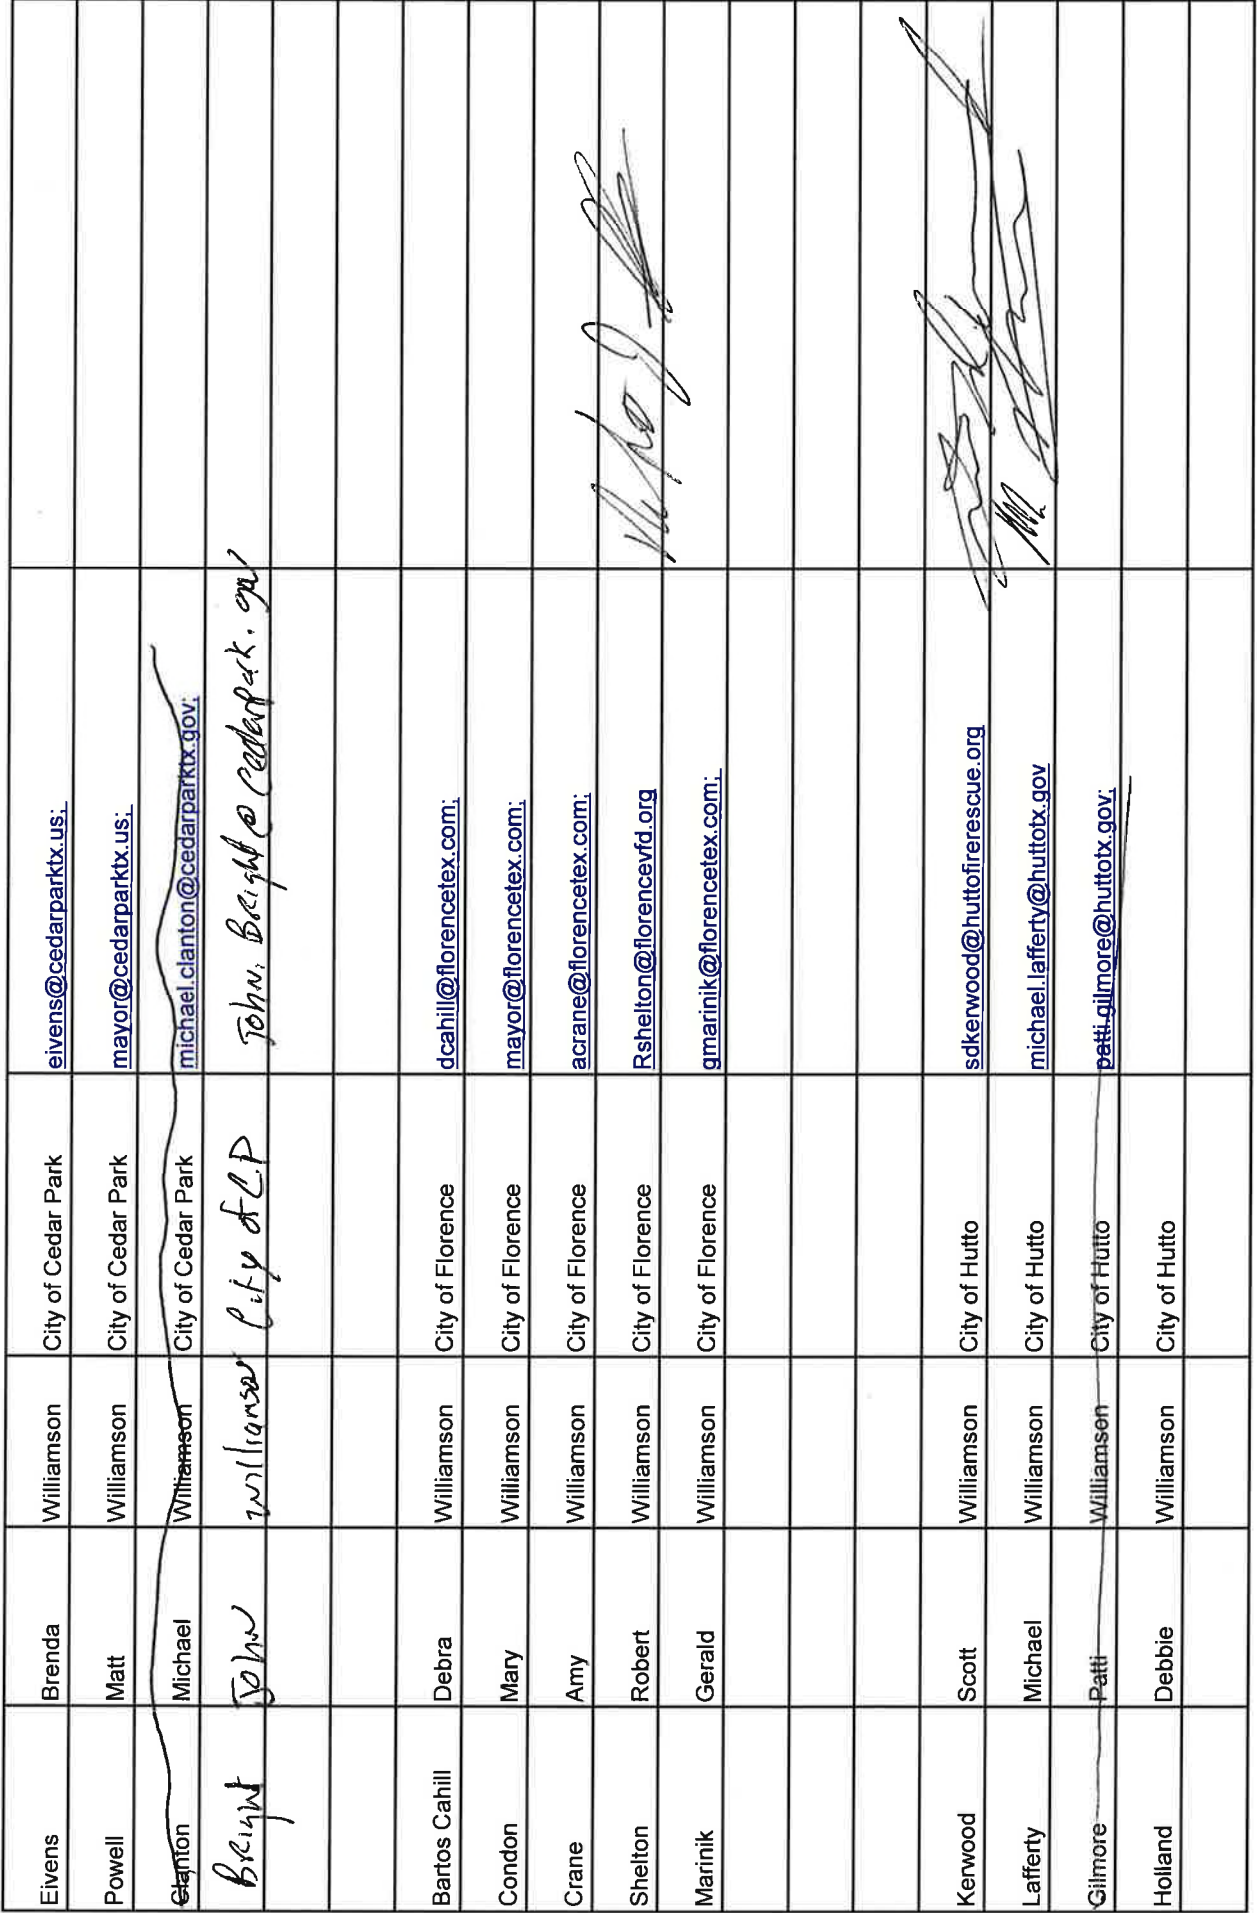 Eivens Brenda Williamson City of Cedar Park eivens@cedarparktx.us;
Powell Matt Williamson City of Cedar Park mayor@cedarparktx.us;
Clanton Michael Williamson City of Cedar Park michael.clanton@cedarparktx.gov;
Bright John Williamson City of CP John.Bright@cedarpark.gov
Bartos Cahill Debra Williamson City of Florence dcahill@florencetex.com;
Condon Mary Williamson City of Florence mayor@florencetex.com;
Crane Amy Williamson City of Florence acrane@florencetex.com;
Shelton Robert Williamson City of Florence Rshelton@florencevfd.org
Marinik Gerald Williamson City of Florence gmarinik@florencetex.com;
Kerwood Scott Williamson City of Hutto sdkerwood@huttofirerescue.org
Lafferty Michael Williamson City of Hutto michael.lafferty@huttotx.gov
Gilmore Patti Williamson City of Hutto patti.gilmore@huttotx.gov;
Holland Debbie Williamson City of Hutto